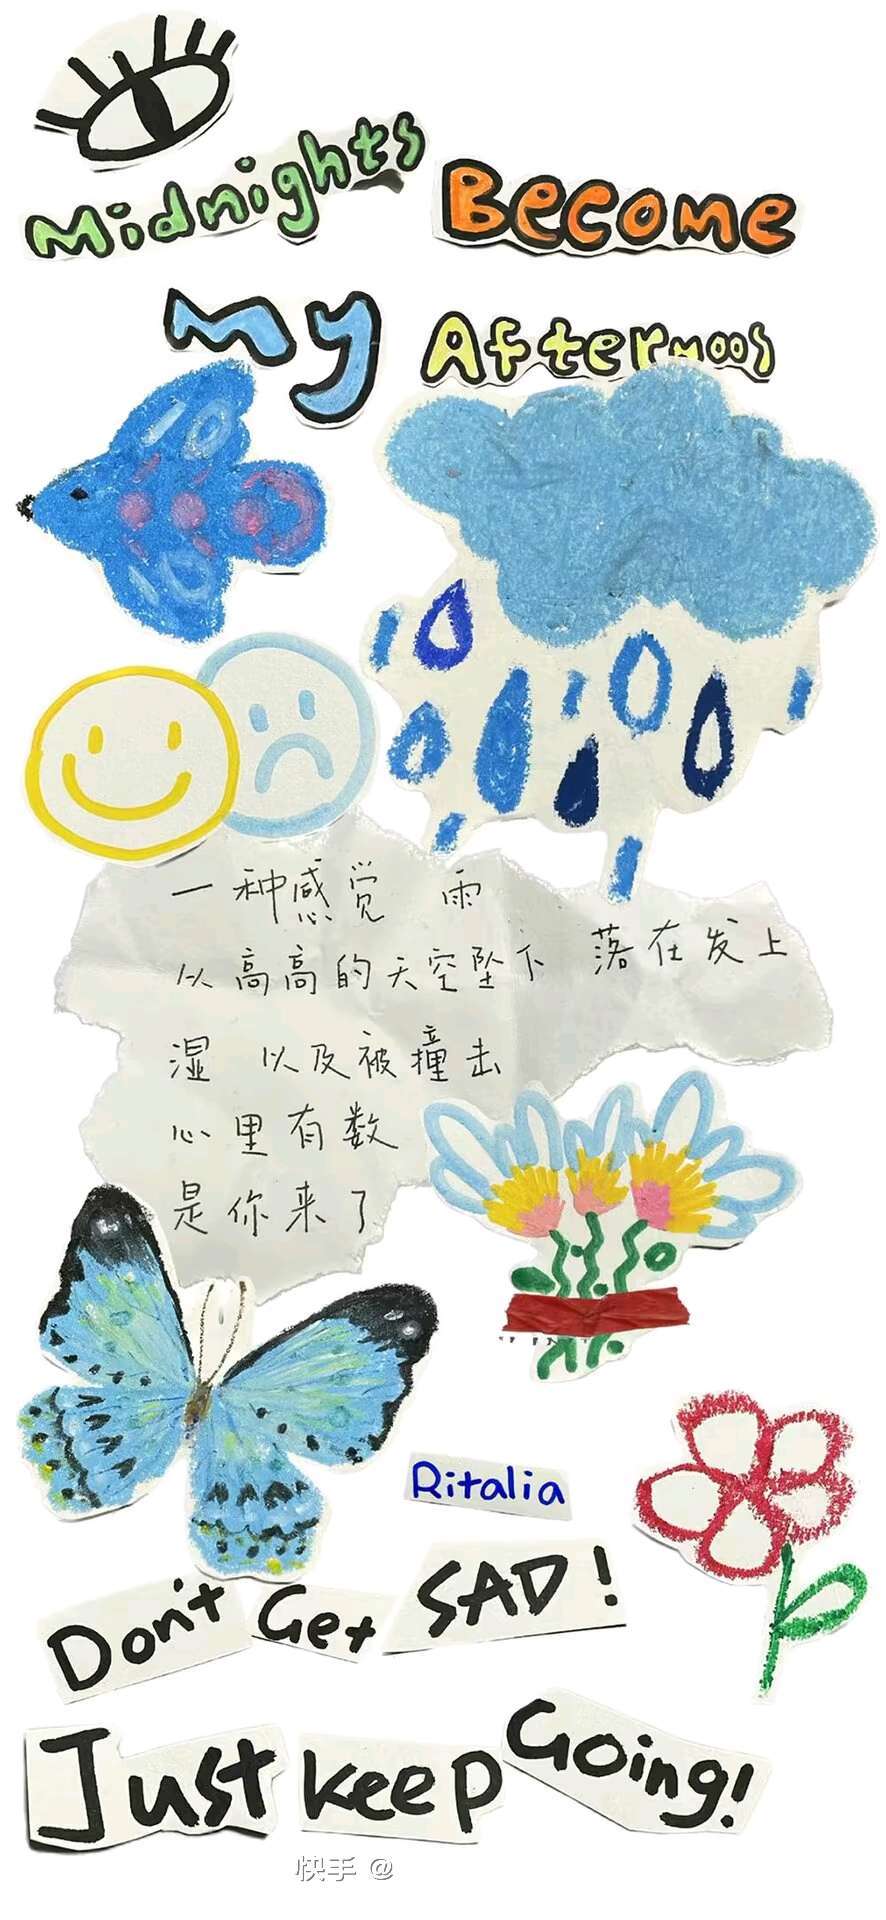 Midnights Become
My Afternoos
一种感觉 雨
从高高的天空坠下 落在发上
湿 以及被撞击
心里有数
是你来了
Ritalia
Don't Get SAD!
Just keep Going!
快手 @